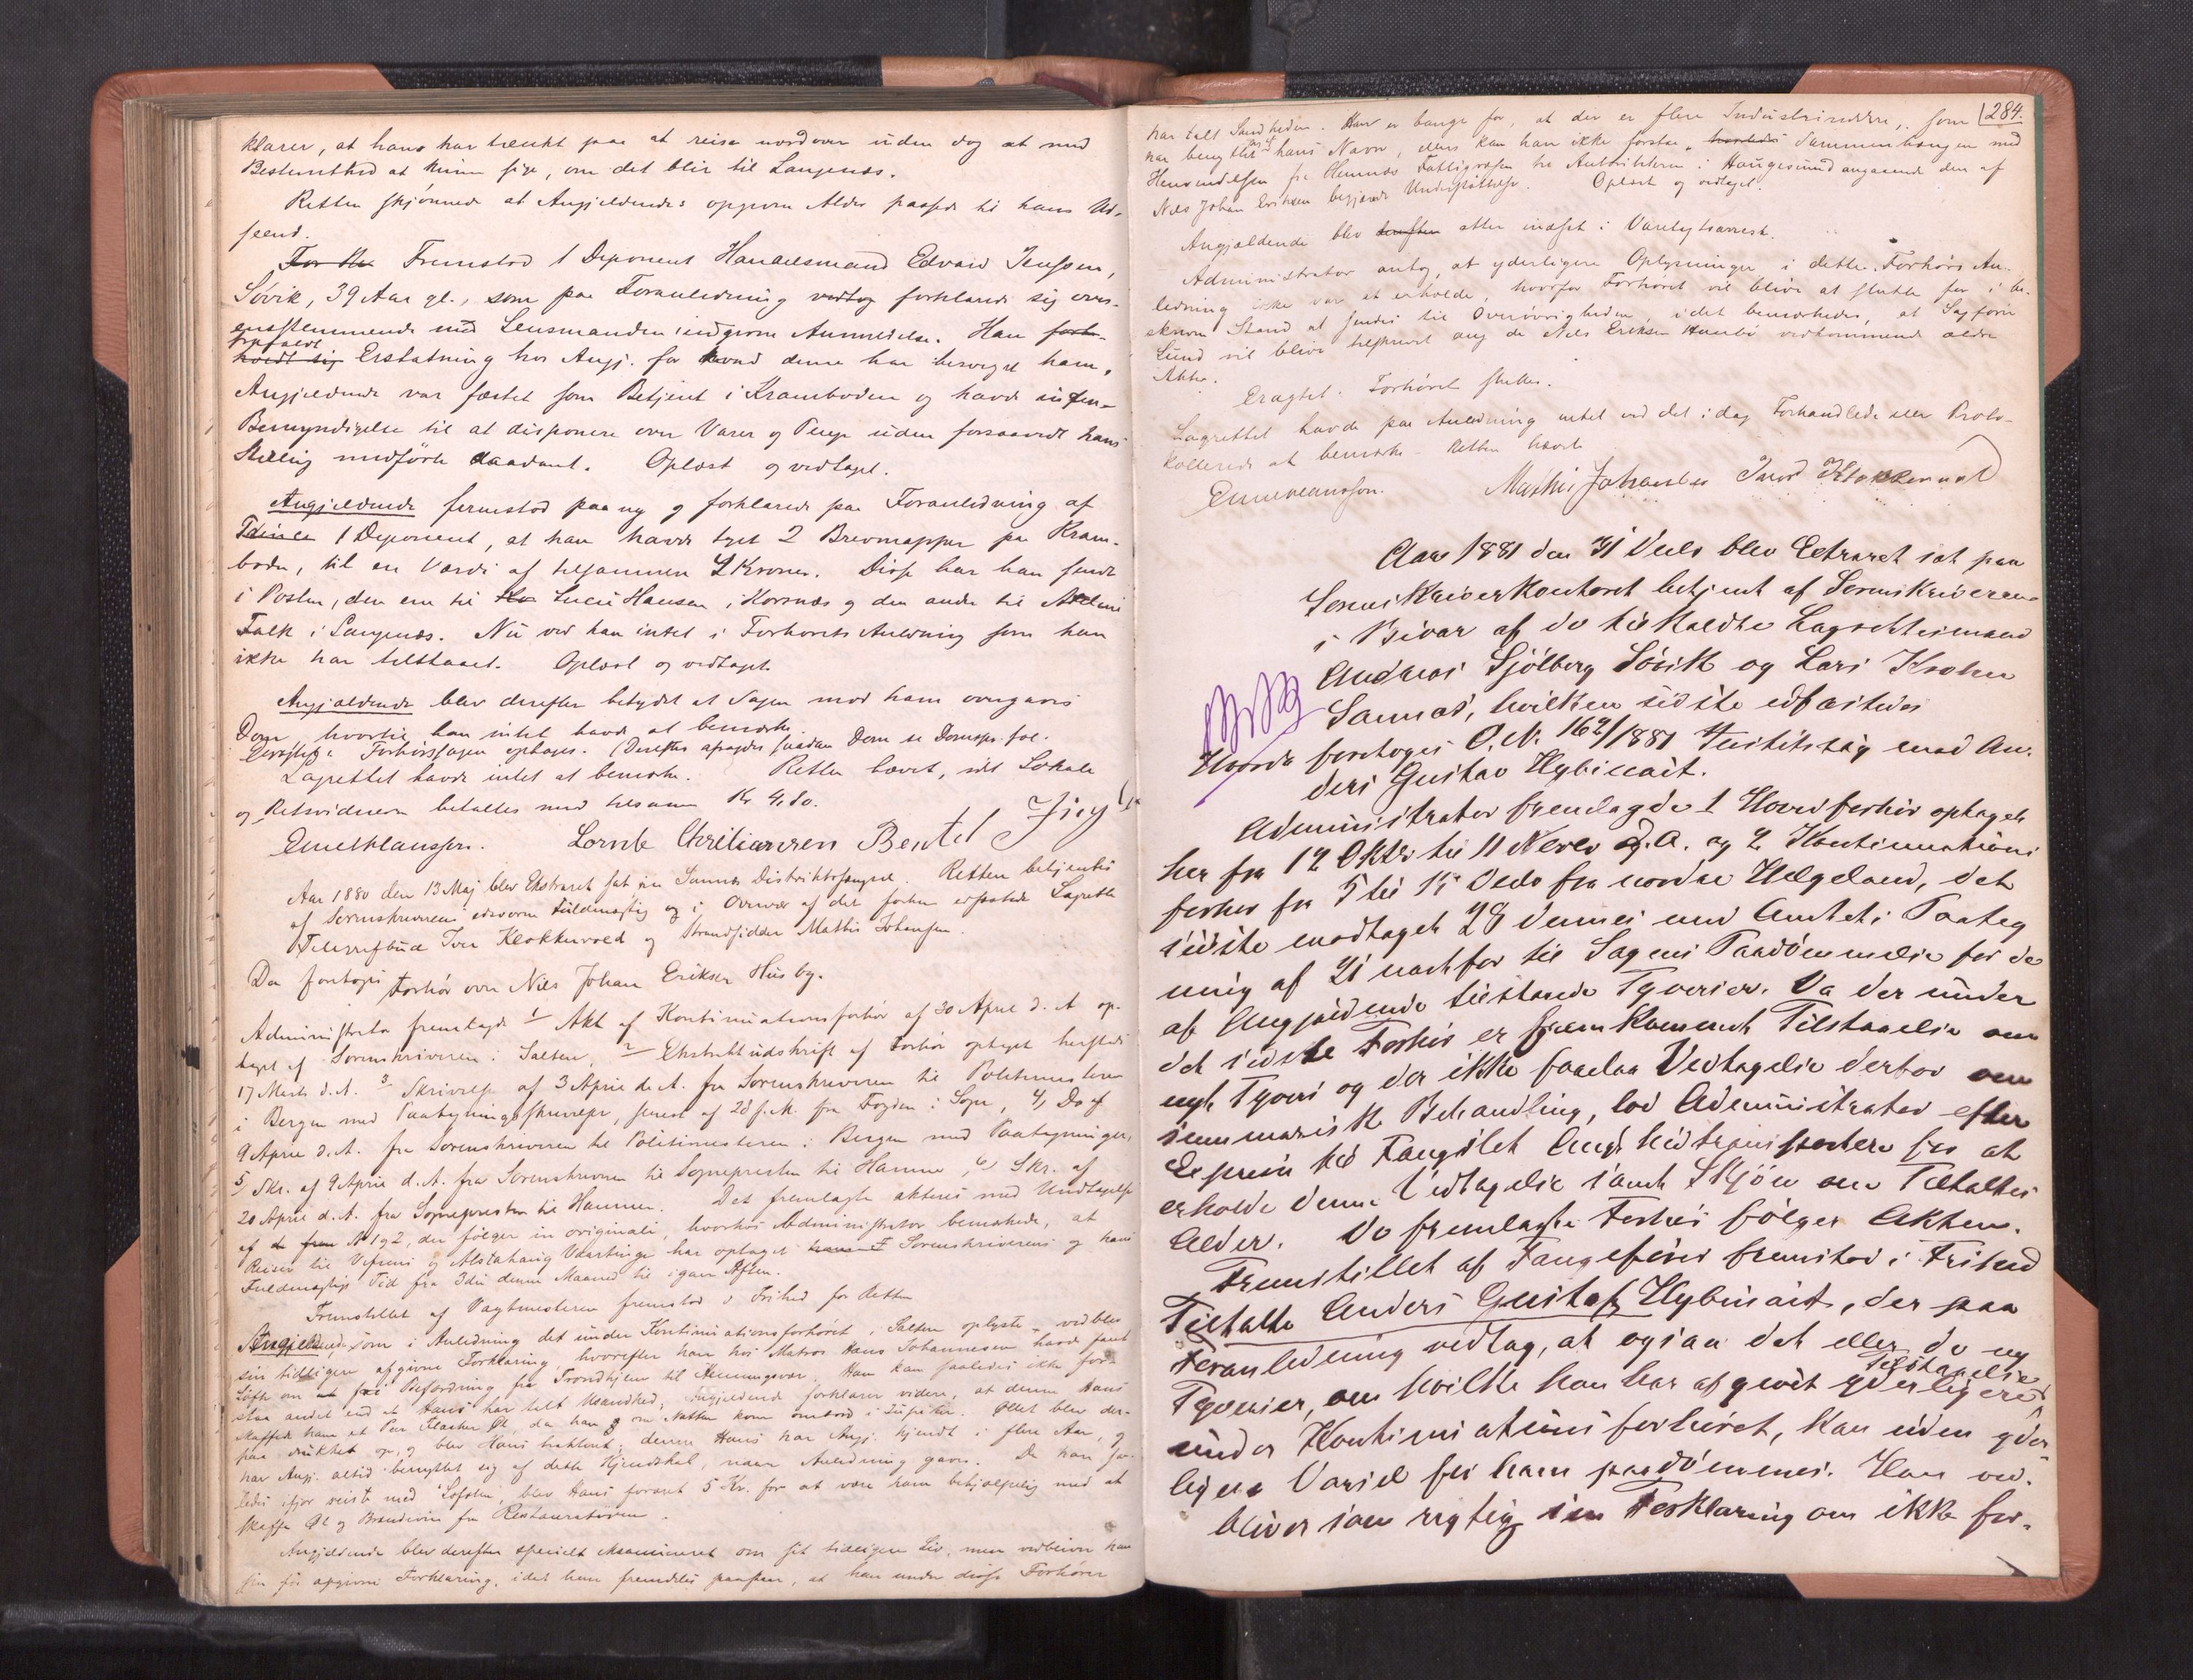 klarer, at hans har tænkt paa at reise nordover uden dog at med
Bestemthed at kunne sige, om det blir til Langenæs.
Retten skjønnede at Angjældendes opgivne Alder passede til hans Ud-
seend.
For Re Fremstod 1 Deponent Handelsmand Edvard Jensen,
Søvik, 39 Aar gl., som paa Foranledning vedtog forklarede sig over-
ensstemmende med Lensmandens indgivne Anmeldelse. Han forbe-
frafaldt
holdt sig Erstatning hos Angj. for hvad denne har besveget ham.
Angjældende var fæstet som Betjent i Kramboden og havde ingen
Bemyndigelse til at disponere over Varer og Penge uden forsaavidt hans
Stilling medførte saadant. Oplæst og vedtaget.
Angjældende fremstod paa ny og forklarede paa Foranledning af
1 Deponent, at han havde taget 2 Brevmapper fra Kram-
boden, til en Værdi af tilsammen 2 Kroner. Disse har han sendt
i Posten, den ene til Lucie Hansen i Korsnæs og den anden til
Falk i Langenæs. Nu ved han intet i Forhørets Anledning som han
ikke har tilstaaet. Oplæst og vedtaget.
Angjældende blev derefter betydet at Sagen mod ham overgaves
Dom, hvortil han intet havde at bemærke.
Eragtet: Forhørssagen optages. (Derefter afsagdes saadan Dom se Domspr. fol.
Lagrettet havde intet at bemærke. Retten hævet, idet Lokale
og Retsvidnerne betaltes med tilsammen Kr. 4,80.
Emil Klaussen. Lornts Christiansen Bentet
Aar 1880 den 13 Maj blev Extraret sat paa Sannes Distriktsfængsel. Retten betjentes
af Sorenskriverens edsvorne Fuldmægtig og i Overvær af det forhen edfæstede Lagrette
Telegrafbud Iver Klokkervold og Strandsidder Mathis Johansen.
Da foretoges Forhør over Nils Johan Eriksen Husby.
Administrator fremlagde 1 Akt af Kontinuationsforhør af 30 April d. A. op-
taget af Sorenskriveren i Salten, 2 Ekstraktudskrift af Forhør optaget hersteds
17 Marts d. A. 3 Skrivelse af 3 April d. A. fra Sorenskriveren til Politimesteren
i Bergen med Paategningsskrivelser, senest af 28 s. M. fra Fogden i Sogn, 4, Do af
9 April d. A. fra Sorenskriveren til Politimesteren i Bergen med Paategninger,
5/ Skr. af 9 April d. A. fra Sorenskriveren til Sognepresten til Hammer, 6) Skr. af
20 April d. A. fra Sognepresten til Hammer. Det fremlagte akteres med Undtagelse
af de frem N 1 og 2, der følger in originali, hvorhos Administrator bemærkede, at
Reiser til Vefsens og Alstahaug Vaartinge har optaget Sorenskriverens og hans
Fuldmægtigs Tid fra 3die denne Maaned til igaar Aften.
Fremstillet af Vagtmesteren fremstod i Frihed for Retten
Angjældende som i Anledning det under Kontinuationsforhøret i Salten oplyste vedblev
sin tidligere afgivne Forklaring, hvorefter han hos Matros Hans Johannesen havde faaet
Løfte om Befordring fra Trondhjem til Henningsvær. Han kan saaledes ikke for-
staa andet end at Hans har talt Usandhed; Angjældende forklarer videre, at denne Hans
skaffede ham et Par Flasker Øl, da han om Natten kom ombord i Jupiter. Øllet blev der-
paa drukket op, og blev Hans beskjænket; denne Hans har Angj. kjendt i flere Aar, og
har Angj. altid benyttet sig af dette Kjendskab, naar Anledning gaves. Da han saa-
ledes ifjor reiste med Lofoten, blev Hans foræret 5 Kr. for at være ham behjælpelig med at
skaffe Øl og Brændevin fra Restauratøren.
Angjældende blev derefter specielt examineret om sit tidligere Liv, men vedblev han
sin før afgivne Forklaring, idet han fremdeles paastaar, at han under disse Forhører
284.
har talt Sandheden. Han er bange for, at der er flere Industririddere, som
har benyttet hans Navn, ellers kan han ikke forstaa Sammenhængen med
Henvendelsen fra Hemnæs Fattigvæsen til Autoriteterne i Haugesund angaaende den af
Nils Johan Eriksen begjærede Understøttelse. Oplæst og vedtaget.
Angjældende blev derefter atter indsat i Varetægtsarrest.
Administrator antog, at yderligere Oplysninger i dette Forhørs An-
ledning ikke var at erholde, hvorfor Forhøret vil blive at slutte for i be-
skreven Stand at sendes til Overøvrigheden, idet bemærkedes, at Sagfører
Lund vil blive tilskrevet ang de Nils Eriksen vedkommende ældre
Akter.
Eragtet: Forhøret sluttes.
Lagrettet havde paa Anledning intet ved det i dag Forhandlede eller Proto-
kollerede at bemærke. Retten hævet
Emil Klaussen. Mathis Johansen Iver Klokkervold
Aar 1881 den 31 Decbr blev Extraret sat paa
Sorenskriverkontoret betjent af Sorenskriveren
i Bivær af de tilkaldte Lagrettesmænd
Andreas Sjölberg Søvik og Lars Krohn
Sannæs, hvilken sidste edfæstedes
Hvorda foretoges O. N. 162/1881 Justitssag mod An-
ders Gustav Hybinait.
Administrator fremlagde 1 Hovedforhør optaget
her fra 12 Oktbr til 11 Novbr d. A. og 2 Kontinuations
forhør fra 5 til 15 Decbr fra nordre Helgeland, det
sidste modtaget 28 dennes med Amtets Paateg
ning af 21 næstfør til Sagens Paadømmelse for de
af Angjældende tilstaaede Tyverier. Da der under
det sidste Forhør er fremkommet Tilstaaelse om
nyt Tyveri og der ikke forelaa Vedtagelse derfor om
summarisk Behandling, lod Administrator efter
Depesche til Fængslet Angj. hidtransportere for at
erholde denne Vedtagelse samt Skjøn om Tiltaltes
Alder. De fremlagte Forhør følger Akten.
Fremstillet af Fangefører fremstod i Frihed
Tiltalte Anders Gustaf Hybinait, der paa
Foranledning vedtog, at ogsaa det eller de ny
Tyverier, om hvilke han har afgivet yderligere Tilstaaelse
under Kontinuationsforhøret, kan uden yder
ligere Varsel for ham paadømmes. Han ved-
bliver som rigtig sin Forklaring om ikke for-